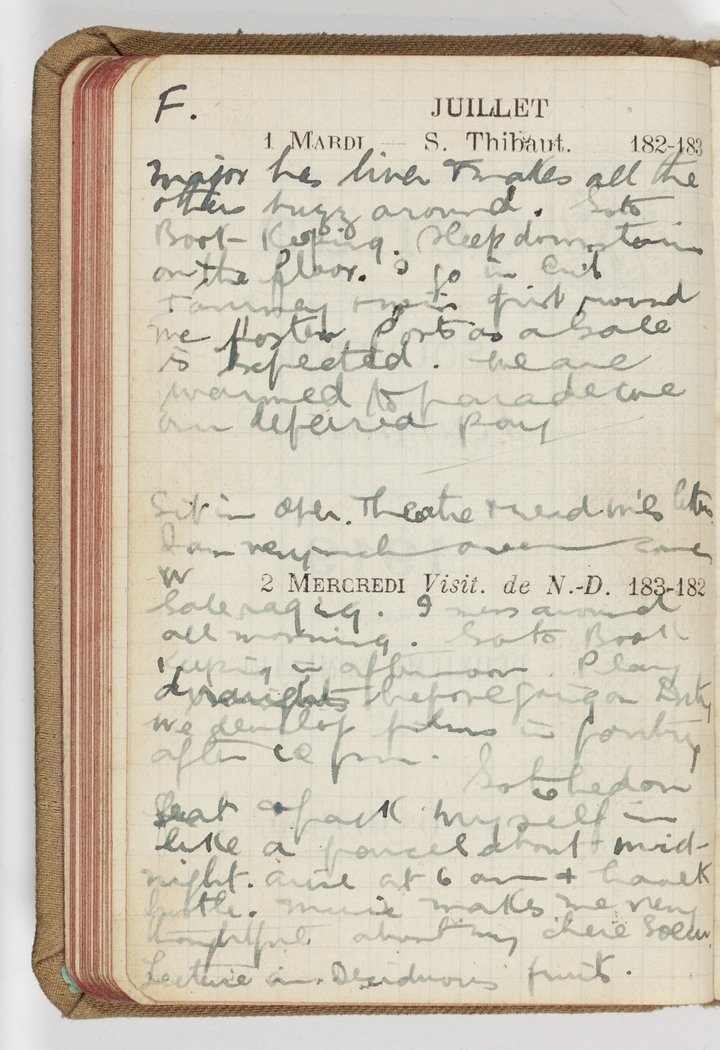 F.
JUILLET
1 MARDI — S. Thibaut. 182-183
major has liver & makes all the
others buzz around. Go to
Book-Keeping. Sleep downstairs
on the floor. I go in
first round
we fasten Ports as a Gale
is expected. We are
warned to parade we
our deferred pay
Sit in Oper. Theatre & read letters
I am very much
W
2 MERCREDI Visit. de N.-D. 183-182
Gale raging. I mess around
all morning. Go to Book
Keeping in afternoon. Play
draughts before going on Duty
we develop films in pantry
after
Go to bed on
Seat & pack myself in
like a parcel about mid-
night. arise at 6 am &
bustle. Music makes me very
thoughtful about my chere Soeur
Lecture on Deciduous fruits.